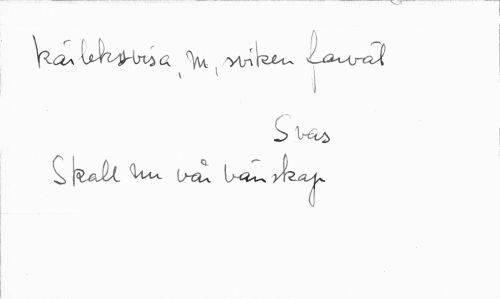 kärleksvisa, m, sviken farväl
Svas
Skall nu vår vänskap